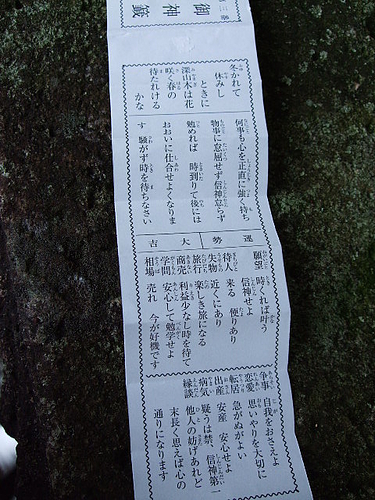 御神籤
冬かれて
休みし
ときに
深山木は花
咲く春の
待たれける
かな
何事も心を正直に強く持ち
物事に怠屈せず信神怠らず
勉めれば 時到りて後には
おおいに仕合せよくなりま
す 騒がず時を待ちなさい
運勢 大吉
願望 時くれば叶う
信神せよ
待人 来る 便りあり
失物 近くにあり
旅行 楽しき旅になる
商売 利益少なし時を待て
学問 安心して勉学せよ
相場 売れ 今が好機です
争事 自我をおさえよ
恋愛 思いやりを大切に
転居 急がぬがよい
出産 安産 安心せよ
病気 疑うは禁、信神第一
縁談 他人の妨げあれど
末長く思えば心の
通りになります